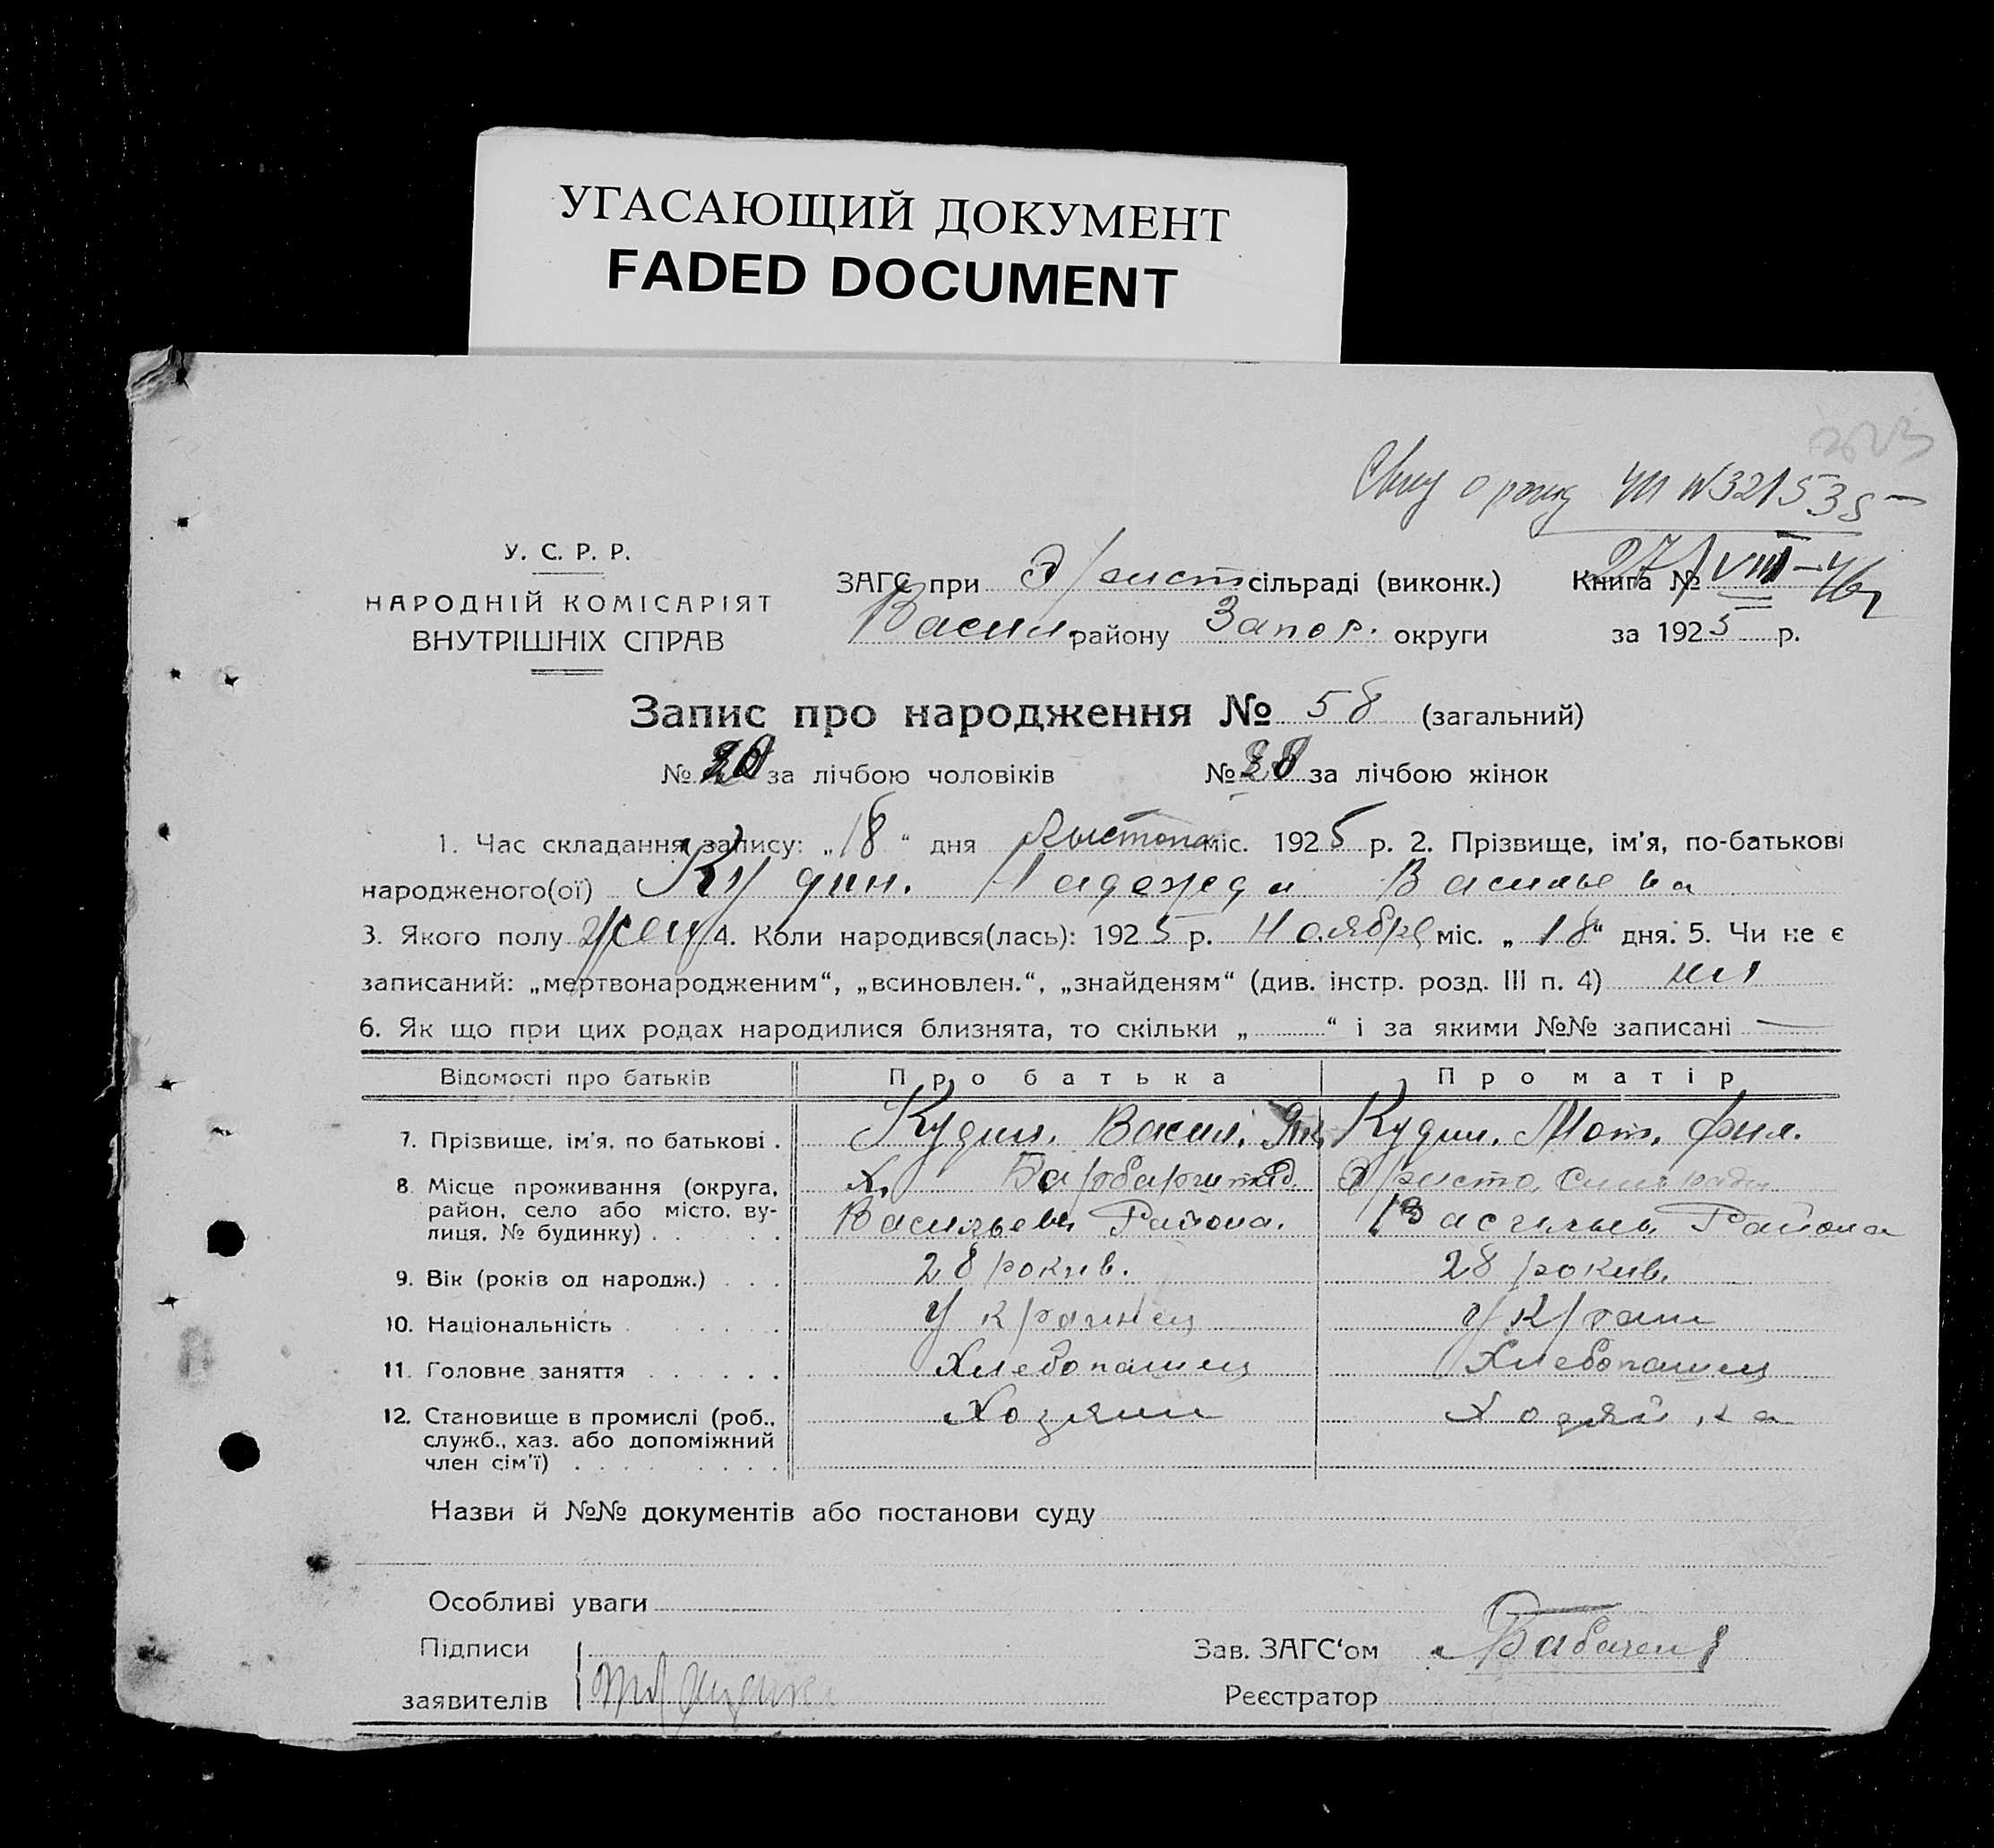 УГАСАЮЩИЙ ДОКУМЕНТ
FADED DOCUMENT
о рожд № 321535
27/VIII-46г
У. С. Р. Р.
НАРОДНІЙ КОМІСАРІЯТ
ВНУТРІШНІХ СПРАВ
ЗАГС при сільраді (виконк.) Книга №
Васил. району Запор. округи за 1925 р.
Запис про народження № 58 (загальний)
№ 20 за лічбою чоловіків № 38 за лічбою жінок
1. Час складання запису: „18“ дня Листопа міс. 1925 р. 2. Прізвище, ім'я, по-батькові
народженого(ої) Кудин. Надежда Васильевна
3. Якого полу жен 4. Коли народився(лась): 1925 р. Ноября міс. „18“ дня. 5. Чи не є
записаний: „мертвонародженим“, „всиновлен.“, „знайденям“ (див. інстр. розд. III п. 4) ни
6. Як що при цих родах народилися близнята, то скільки „ “ і за якими №№ записані —
Відомості про батьків Про батька Про матір
7. Прізвище, ім'я, по батькові . Кудин. Васил. Кудин. Мот. Фил.
8. Місце проживання (округа, Х.
район, село або місто, ву- Васильев Района. Васильев Района
лиця, № будинку)
9. Вік (років од народж.) 28 рокив. 28 рокив.
10. Національність Украинец Украин
11. Головне заняття Хлебопашец Хлебопашец
12. Становище в промислі (роб., Хозяин Хозяйка
служб., хаз. або допоміжний
член сім'ї)
Назви й №№ документів або постанови суду
Особливі уваги
Підписи Зав. ЗАГС‘ом
заявителів Реєстратор